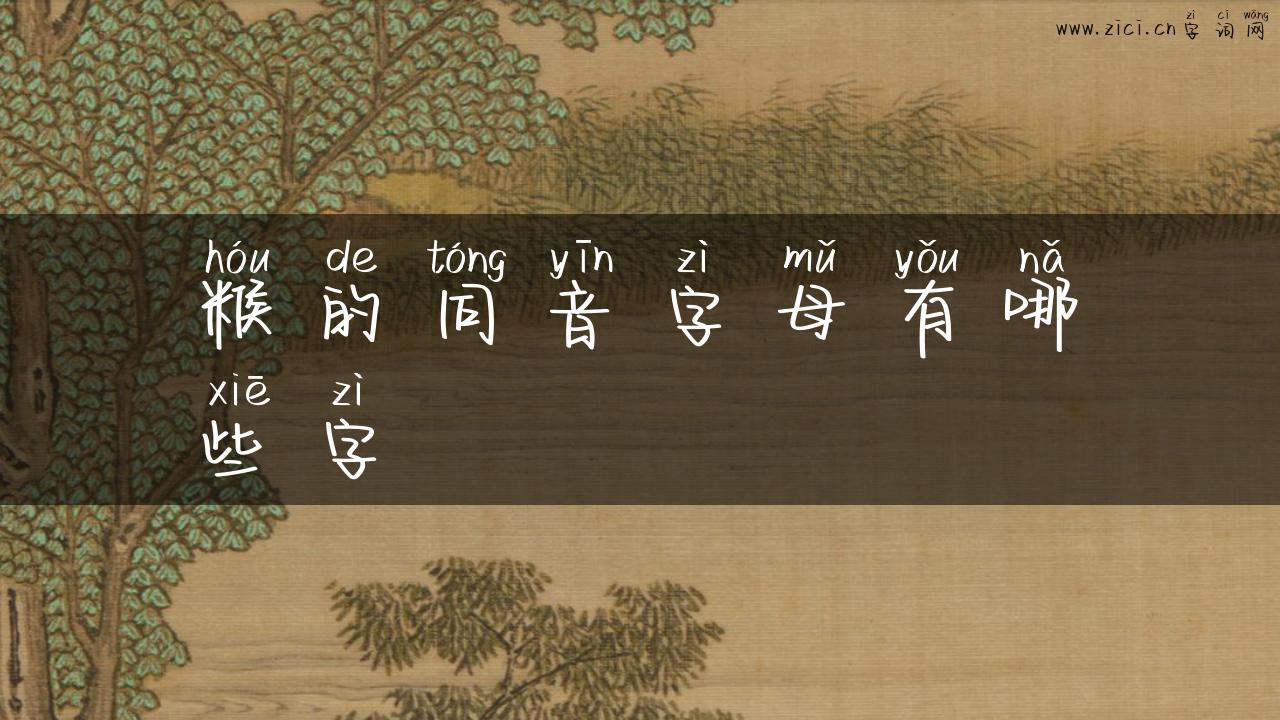 zì cí wǎng
www.zici.cn 字词网
hóu de tóng yīn zì mǔ yǒu nǎ
糇的同音字母有哪
xiē zì
些字